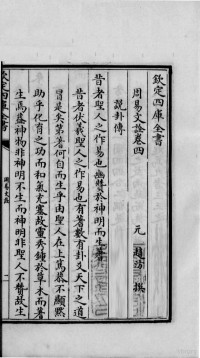 欽定四庫全書
周易文詮卷四
元 趙汸 撰
說卦傳
昔者聖人之作易也幽贊於神明而生蓍
昔者伏羲聖人之作易也有蓍數有卦爻天下之道
冒是矣第蓍何自而生乎由聖人在上篤恭不顯默
助乎化育之功而和氣充塞故靈秀鍾於草木而蓍
生焉蓋神物非神明不生而神明非聖人不贊故生
欽定四庫全書 周易文詮 一